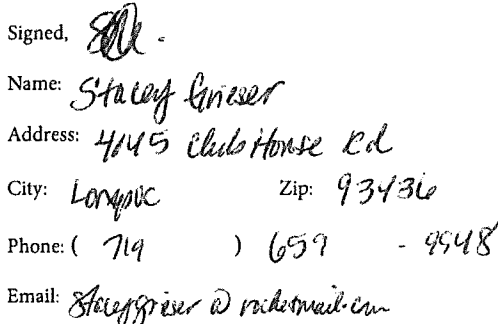 Signed,
Name: Stacey Grieser
Address: 4145 Club House Rd
City: Lompoc Zip: 93436
Phone: ( 719 ) 659 - 9948
Email: staceygrieser @ rocketmail.com